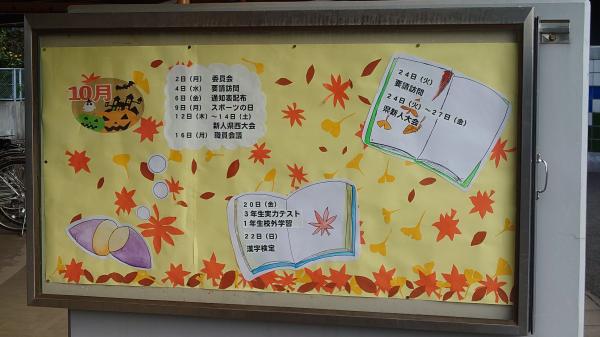 10月
2日（月） 委員会
4日（水） 要請訪問
6日（金） 通知表配布
9日（月） スポーツの日
12日（木）～14日（土）
新人県西大会
16日（月） 職員会議
20日（金）
3年生実力テスト
1年生校外学習
22日（日）
漢字検定
24日（火）
要請訪問
24日（火）～27日（金）
県新人大会